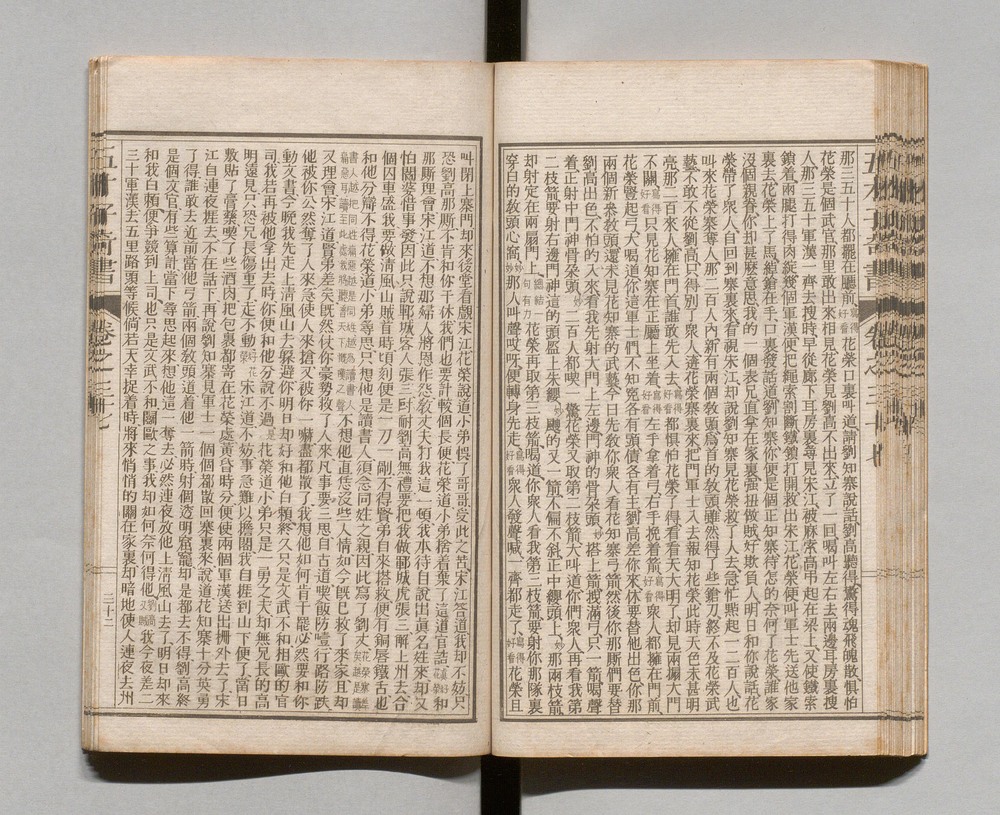 那三五十人都罷在聽前寫得好看花榮口裏叫道請劉知寨說話劉高聽得驚得魂飛魄散懼怕
花榮是個武官那里敢出來相見花榮見劉高不出來立了一回喝叫左右去兩邊耳房裏搜
人那三五十軍漢一齊去搜時早從廊下耳房裏尋見宋江被麻索高吊起在梁上又使鐵索
鎖着兩腿打得肉綻幾個軍漢便把繩索割斷鐵鎖打開救出宋江花榮便叫軍士先送他家
裏去花榮上了馬綽鎗在手口裏發話道劉知寨你便是個正知寨待怎的奈何了花榮誰家
沒個親眷你却甚麼意思我的一個表兄直拿在家裏強扭做賊好欺負人明日和你說話花
榮帶了衆人自回到寨裏來看視宋江却說劉知寨見花榮救了人去急忙點起一二百人也
叫來花榮寨奪人那一二百人內新有兩個敎頭爲首的敎頭雖然得了些鎗刀終不及花榮武
藝不敢不從劉高只得引了衆人迸花榮寨裏來把門軍士入去報知花榮此時天色未甚明
亮那二百來人擁在門首誰敢先入去寫得好看都懼怕花榮了得看看天大明了却見兩扇大門
不關寫得好看只見花知寨在正廳上坐着寫得好看左手拿着弓右手挽着箭寫得好看衆人都擁在門前
花榮豎起弓大喝道你這軍士們不知冤各有頭債各有主劉高差你來休要替他出色你那
兩個新叅敎頭還未見花知寨的武藝今日先敎你衆人看花知寨弓箭然後你那厮們要替
劉高出色不怕的入來看我先射大門上左邊門神的骨朶頭妙搭上箭拽滿弓只一箭喝聲
着正射中門神骨朶頭妙二百人都喫一驚花榮又取第二枝箭大叫道你們衆人再看我第
二枝箭要射右邊門神這的頭盔上朱纓妙颼的又一箭不偏不斜正中纓頭上妙那兩枝箭
却射定在兩扇門上總結一句有力花榮再取第三枝箭喝道你衆人看我第三枝箭要射你那隊裏
穿白的敎頭心窩妙那人叫聲哎呀便轉身先走寫得好看衆人發聲喊一齊都走了寫得好看花榮且
叫閉上寨門却來後堂看覷宋江花榮說道小弟悞了哥哥受此之苦宋江答道我却不妨只
恐劉高那厮不肯和你干休我們也要計較個長便花榮道小弟捨着棄了這道官誥和
那厮理會宋江道不想那婦人將恩作怨敎丈夫打我這一頓我本待自說出眞名姓來却又
怕閻婆惜事發因此只說鄆城客人張三叵耐劉高無禮要把我做鄆城虎張三解上州去合
個囚車盛我要做清風山賊首時頃刻便是一刀一剮不得賢弟自來搭救便有銅唇鐵舌也
和他分辯不得花榮道小弟尋思只想他是讀書人須念同姓之親因此寫了劉丈
不想他直恁沒些人情如今旣已救了來家且却
又理會宋江道賢弟差矣旣然仗你豪勢救了人來凡事要三思自古道喫飯防噎行路防跌
他被你公然奪了人來急使人來搶又被你一嚇盡都散了我想他如何肯干罷必然要和你
動文書今晚我先走上清風山去躱避你明日却好和他白賴終久只是文武不和相歐的官
司我若再被他拿出去時你便和他分說不過花榮道小弟只是一勇之夫却無兄長的高
明遠見只恐兄長傷重了走不動宋江道不妨事急難以擔閣我自捱到山下便了當日
敷貼了膏藥喫了些酒肉把包裹都寄在花榮處黃昏時分便使兩個軍漢送出柵外去了宋
江自連夜捱去不在話下再說劉知寨見軍士一個個都散回寨裏來說道花知寨十分英勇
了得誰敢去近前當他弓箭兩個敎頭道着他一箭時射個透明窟窿却是都去不得劉高終
是個文官有些算計當下尋思起來想他這一奪去必然連夜放他上清風山去了明日却來
和我白賴便爭競到上司也只是文武不和鬬歐之事我却如何奈何得他我今夜差二
三十軍漢去五里路頭等候倘若天幸捉着時將來悄悄的關在家裏却暗地使人連夜去州
三十二